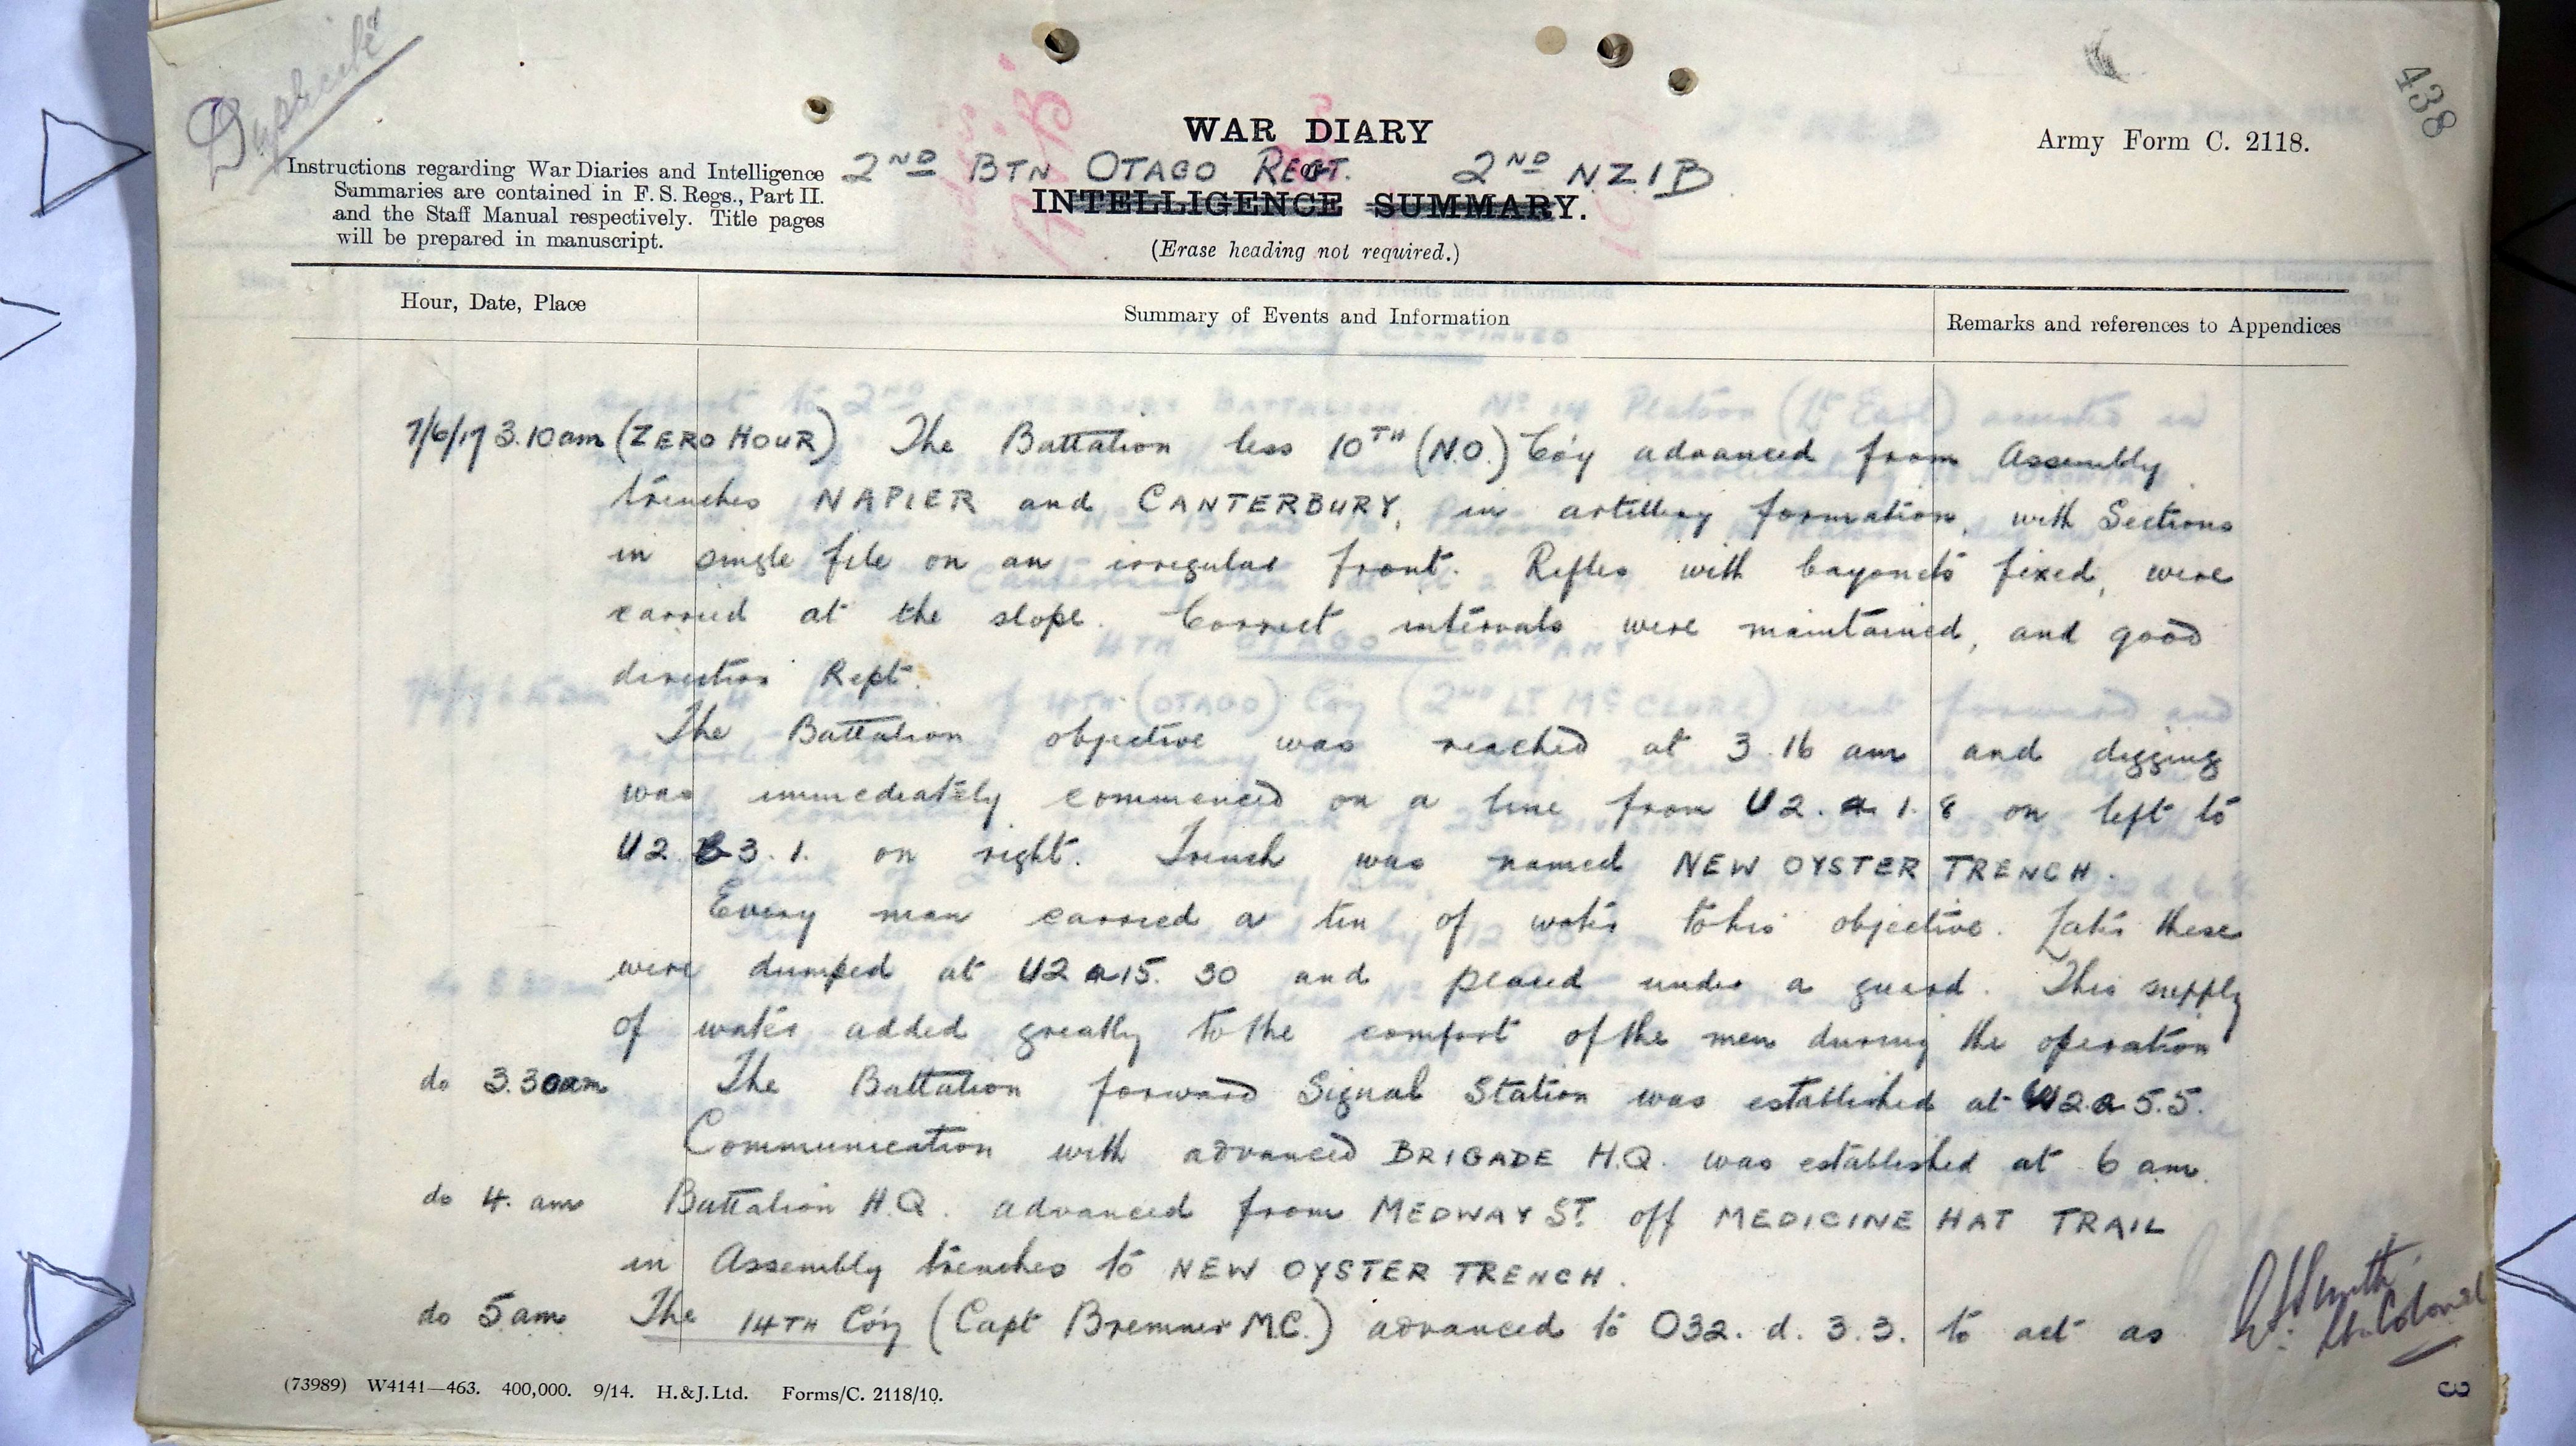 Duplicate
438
WAR DIARY
Army Form C. 2118.
Instructions regarding War Diaries and Intelligence
Summaries are contained in F. S. Regs., Part II.
and the Staff Manual respectively. Title pages
will be prepared in manuscript.
2ND BTN OTAGO REGT. 2ND N.Z.I.B.
INTELLIGENCE SUMMARY.
(Erase heading not required.)
Hour, Date, Place
Summary of Events and Information
Remarks and references to Appendices
7/6/17 3.10am (ZERO HOUR) The Battalion less 10TH (N.O.) Coy advanced from Assembly
trenches NAPIER and CANTERBURY, in artillery formation, with Sections
in single file on an irregular front. Rifles with bayonets fixed, were
carried at the slope. Correct intervals were maintained, and good
direction Kept.
The Battalion objective was reached at 3.16 am and digging
was immediately commenced on a line from U2. a 1. 8 on left to
U2. B 3. 1. on right. Trench was named NEW OYSTER TRENCH.
Every man carried a tin of water to his objective. Later these
were dumped at U2 a 15. 30 and placed under a guard. This supply
of water added greatly to the comfort of the men during the operation
do 3.30am The Battalion forward Signal Station was established at U2.a 5.5.
Communication with advanced BRIGADE H.Q. was established at 6 am.
do 4. am Battalion H.Q. advanced from MEDWAY ST. off MEDICINE HAT TRAIL
in Assembly trenches to NEW OYSTER TRENCH.
do 5am The 14TH Coy (Capt Bremner M.C.) advanced to O32. d. 3.3. to act as
Smith
Lt. Colonel
(73989) W4141—463. 400,000. 9/14. H.&J.Ltd. Forms/C. 2118/10.
3